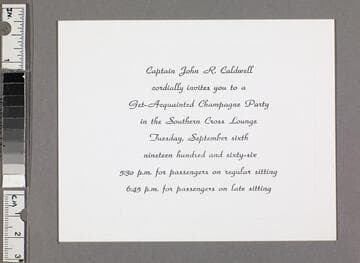 Captain John R. Caldwell
cordially invites you to a
Get-Acquainted Champagne Party
in the Southern Cross Lounge
Tuesday, September sixth
nineteen hundred and sixty-six
5:30 p.m. for passengers on regular sitting
6:45 p.m. for passengers on late sitting
IN
1
CM
1
2
3